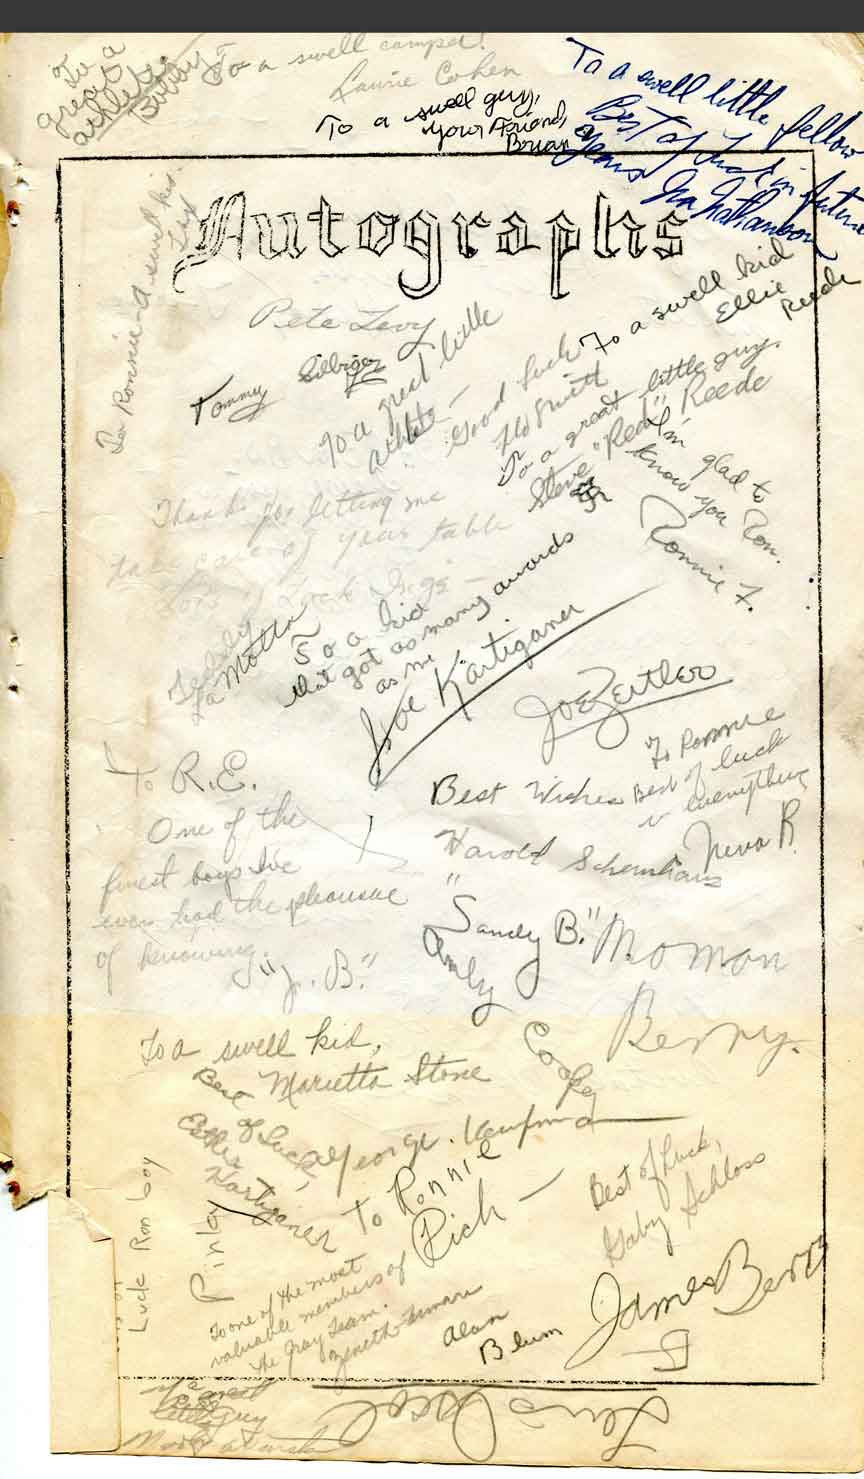 To a
great
athlete
Bobby
To a swell camper!
Laurie Cohen
To a swell guy,
Your Friend,
Brian
To a swell little fellow
Best of luck in future
years
Ira Nathanson
Autographs
To Ronnie - a swell kid.
Pete Levy
Tommy
To a great little
athlete -
Good luck
To a swell kid
Ellie
Reede
To a great little guy.
Steve "Red" Reede
I'm glad to
know you Ron.
Ronnie F.
Thanks for letting me
take care of your table
Lots of Luck
La Motta
To a kid
that got as many awards
as me
Joe Kartiganer
Joe Zeitler
To Ronnie
Best of luck
in everything
Neva R.
To R.E.
One of the
finest boys I've
ever had the pleasure
of knowing.
"J.B."
Best Wishes
Harold
"Sandy B."
Andy
Moman
Berry.
Cooky
To a swell kid,
Marietta Stone
Best
of luck,
Esther
Kartiganer
George
To Ronnie
Rich -
Best of Luck,
Gaby Schloss
Luck Ron boy
Pinky
To one of the most
valuable members of
the Gray Team.
Alan
Blum
James Berry
guy